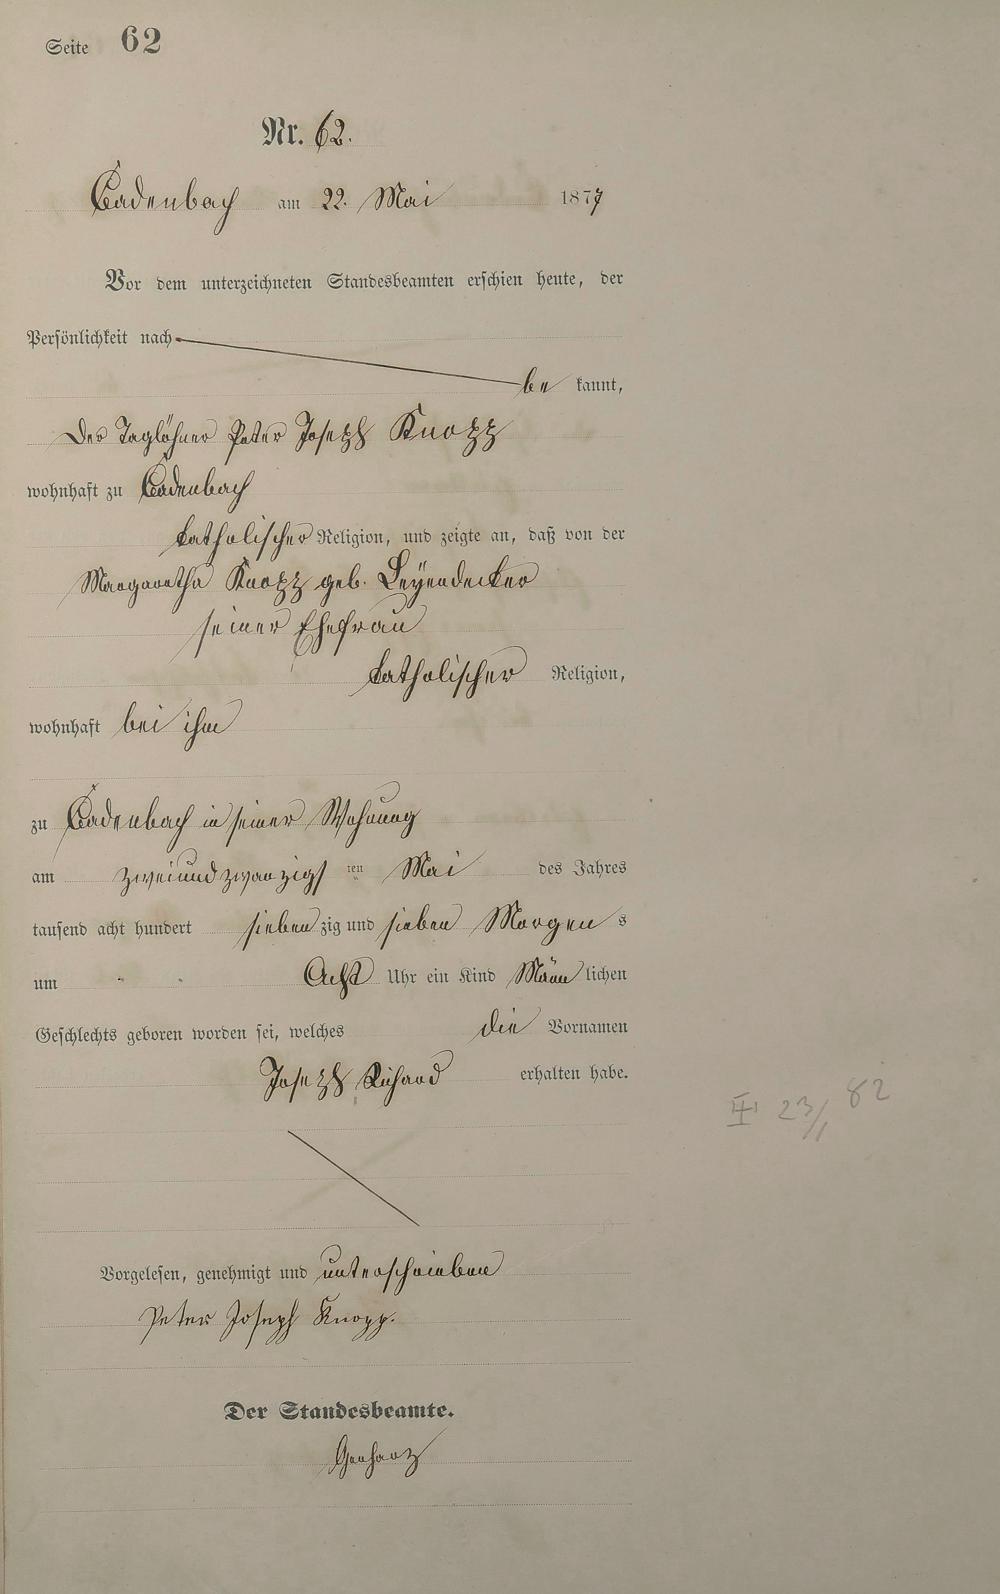 Seite 62
Nr. 62.
Cadenbach am 22. Mai 1877
Vor dem unterzeichneten Standesbeamten erschien heute, der
Persönlichkeit nach
be kannt,
der Taglöhner Peter Joseph Knopp
wohnhaft zu Cadenbach
katholischer Religion, und zeigte an, daß von der
Margaretha Knopp geb. Leyendecker
seiner Ehefrau
katholischer Religion,
wohnhaft bei ihm
zu Cadenbach in seiner Wohnung
am zweiundzwanzigs ten Mai des Jahres
tausend acht hundert sieben zig und sieben Morgen s
um Acht Uhr ein Kind Männ lichen
Geschlechts geboren worden sei, welches die Vornamen
Joseph Richard erhalten habe.
III 23/1 82
Vorgelesen, genehmigt und unterschrieben
Peter Joseph Knopp.
Der Standesbeamte.
Gerharz